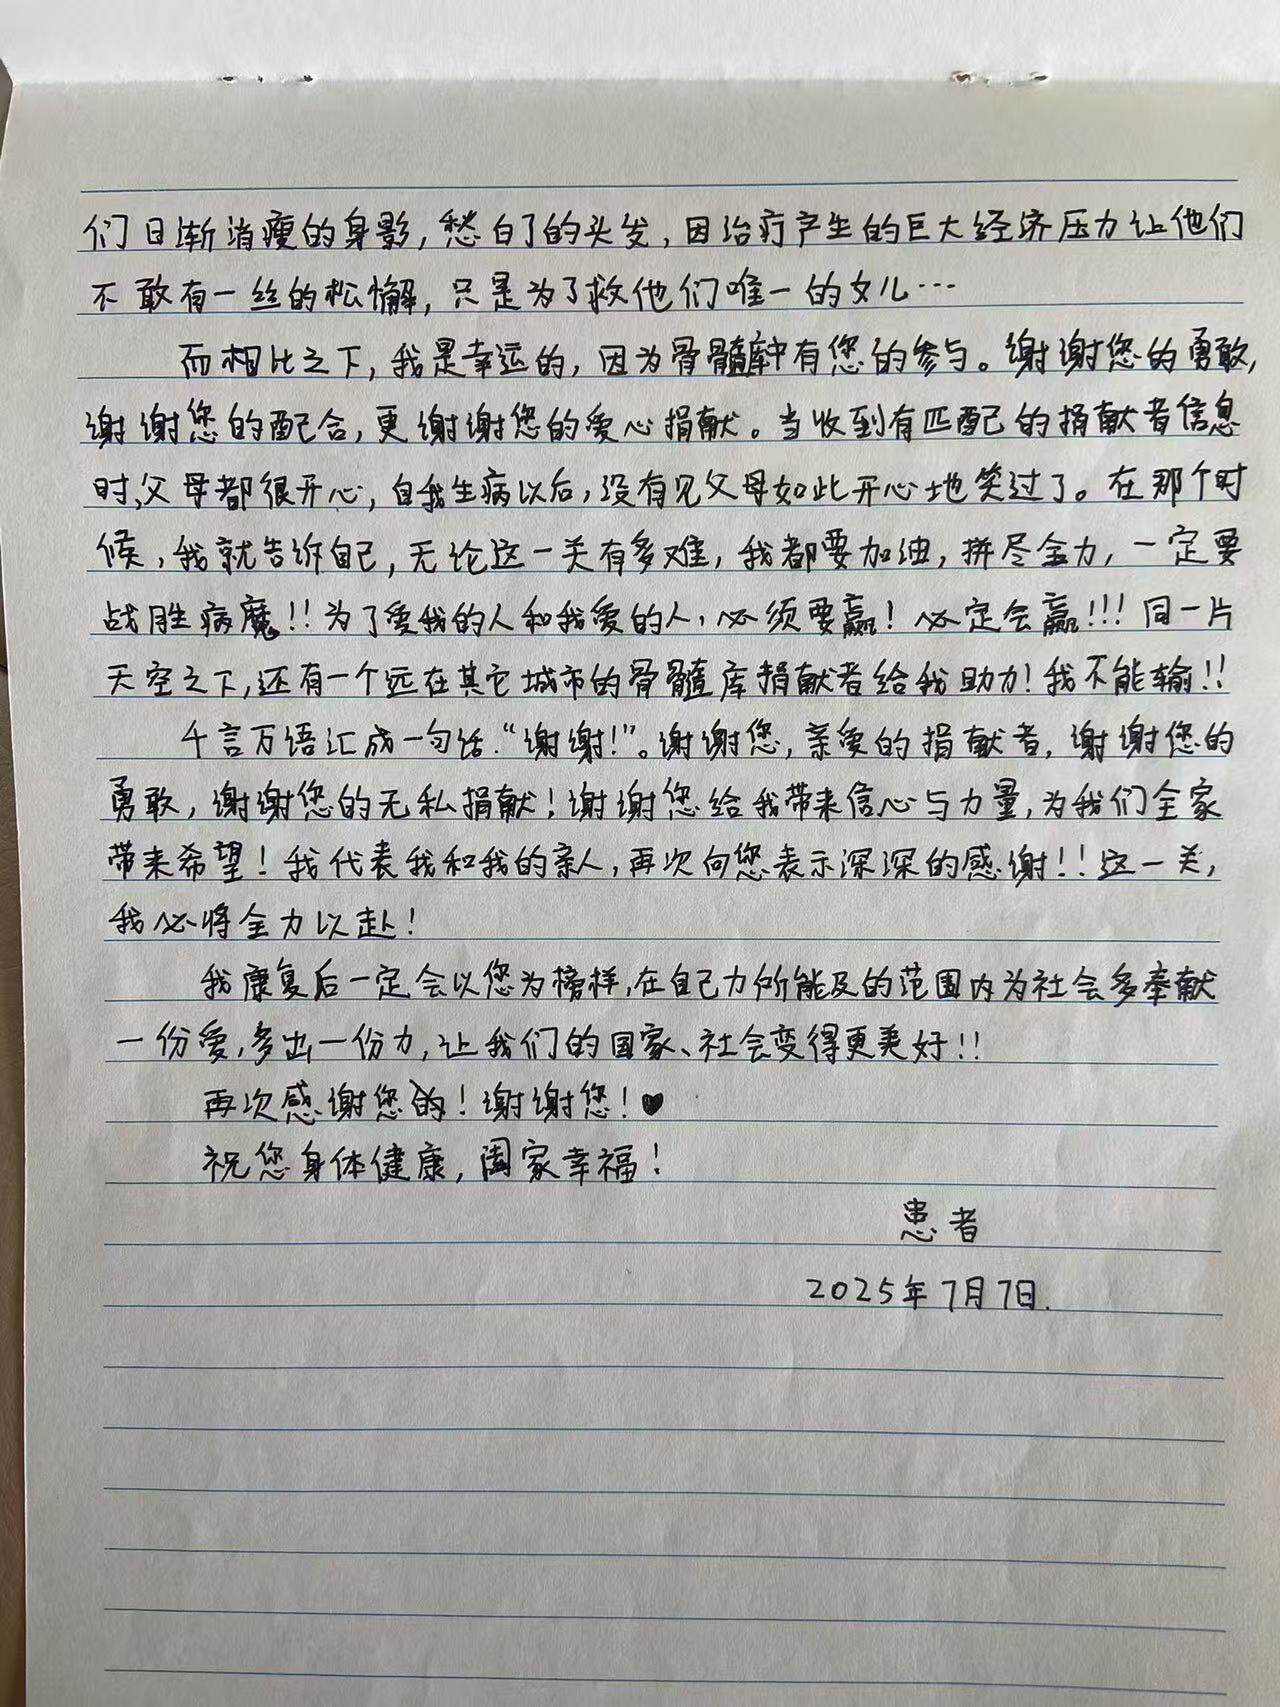 们日渐消瘦的身影，愁白了的头发，因治疗产生的巨大经济压力让他们
不敢有一丝的松懈，只是为了救他们唯一的女儿…
而相比之下，我是幸运的，因为骨髓库中有您的参与。谢谢您的勇敢，
谢谢您的配合，更谢谢您的爱心捐献。当收到有匹配的捐献者信息
时，父母都很开心，自我生病以后，没有见父母如此开心地笑过了。在那个时
候，我就告诉自己，无论这一关有多难，我都要加油，拼尽全力，一定要
战胜病魔！！为了爱我的人和我爱的人，必须要赢！必定会赢！！！同一片
天空之下，还有一个远在其它城市的骨髓库捐献者给我助力！我不能输！！
千言万语汇成一句话“谢谢！”。谢谢您，亲爱的捐献者，谢谢您的
勇敢，谢谢您的无私捐献！谢谢您给我带来信心与力量，为我们全家
带来希望！我代表我和我的亲人，再次向您表示深深的感谢！！这一关，
我必将全力以赴！
我康复后一定会以您为榜样，在自己力所能及的范围内为社会多奉献
一份爱，多出一份力，让我们的国家、社会变得更美好！！
再次感谢您！谢谢您！♥
祝您身体健康，阖家幸福！
患者
2025年7月7日.